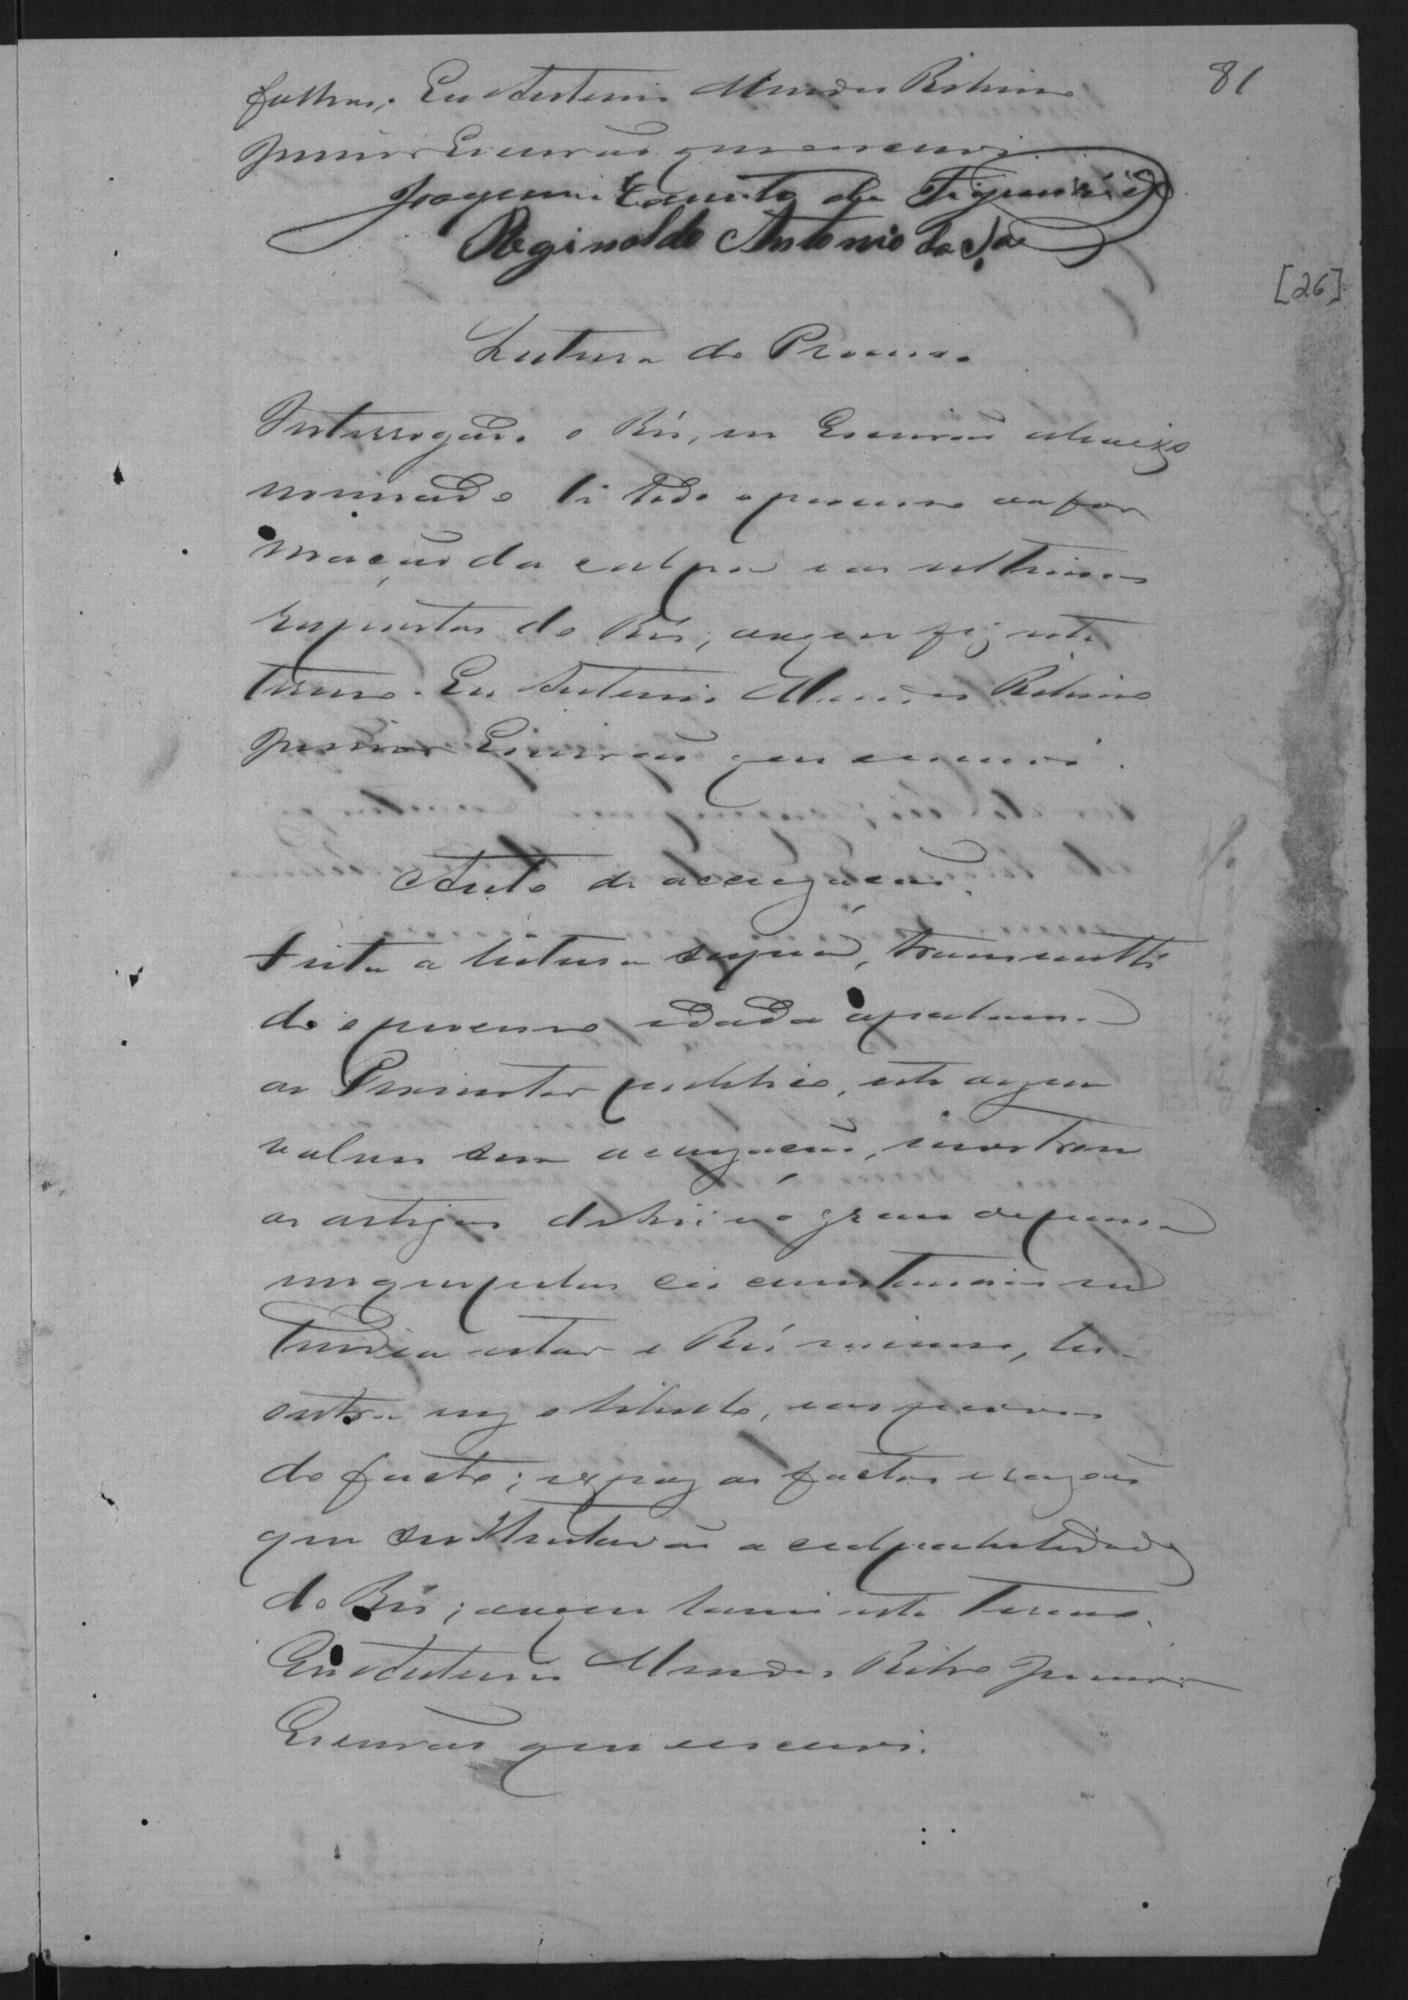 81
faltas. Eu Antonio Mendes Ribeiro
Junior Escrivão que escrevi.
Joaquim Canuto de Figueirêdo
Reginaldo Antonio da Sa.
[26]
Leitura do Processo
Interrogado o Réo, eu Escrivão abaixo
nomiado li todo o processo da for
mação da culpa e as ultimas
respostas do Réo; do que fiz este
termo. Eu Antonio Mendes Ribeiro
Junior Escrivão que escrevi.
Auto de accusação.
Finta a leitura supra, transmitti
do o processo e dada a palavra
ao Promotor publico, este
sua accusação, mostrou
os artigos da Lei e o grau de pena
em que pelas circumstancias en
tendia estar o Réo incurso, leu
outra vez o libello, e as provas
do facto; e expoz os factos e razões
que sustentavão a culpabilidade
do Réo; do que lavrei este termo.
Eu Antonio Mendes Ribro Junior
Escrivão que escrevi.